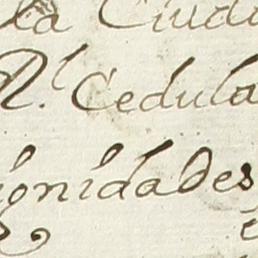 la Ciud
R.l Cedula
ignidades